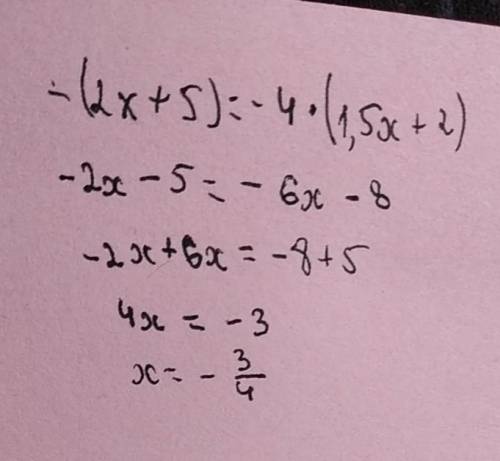 -(2x+5)=-4·(1,5x+2)
-2x-5=-6x-8
-2x+6x=-8+5
4x=-3
x=-3/4